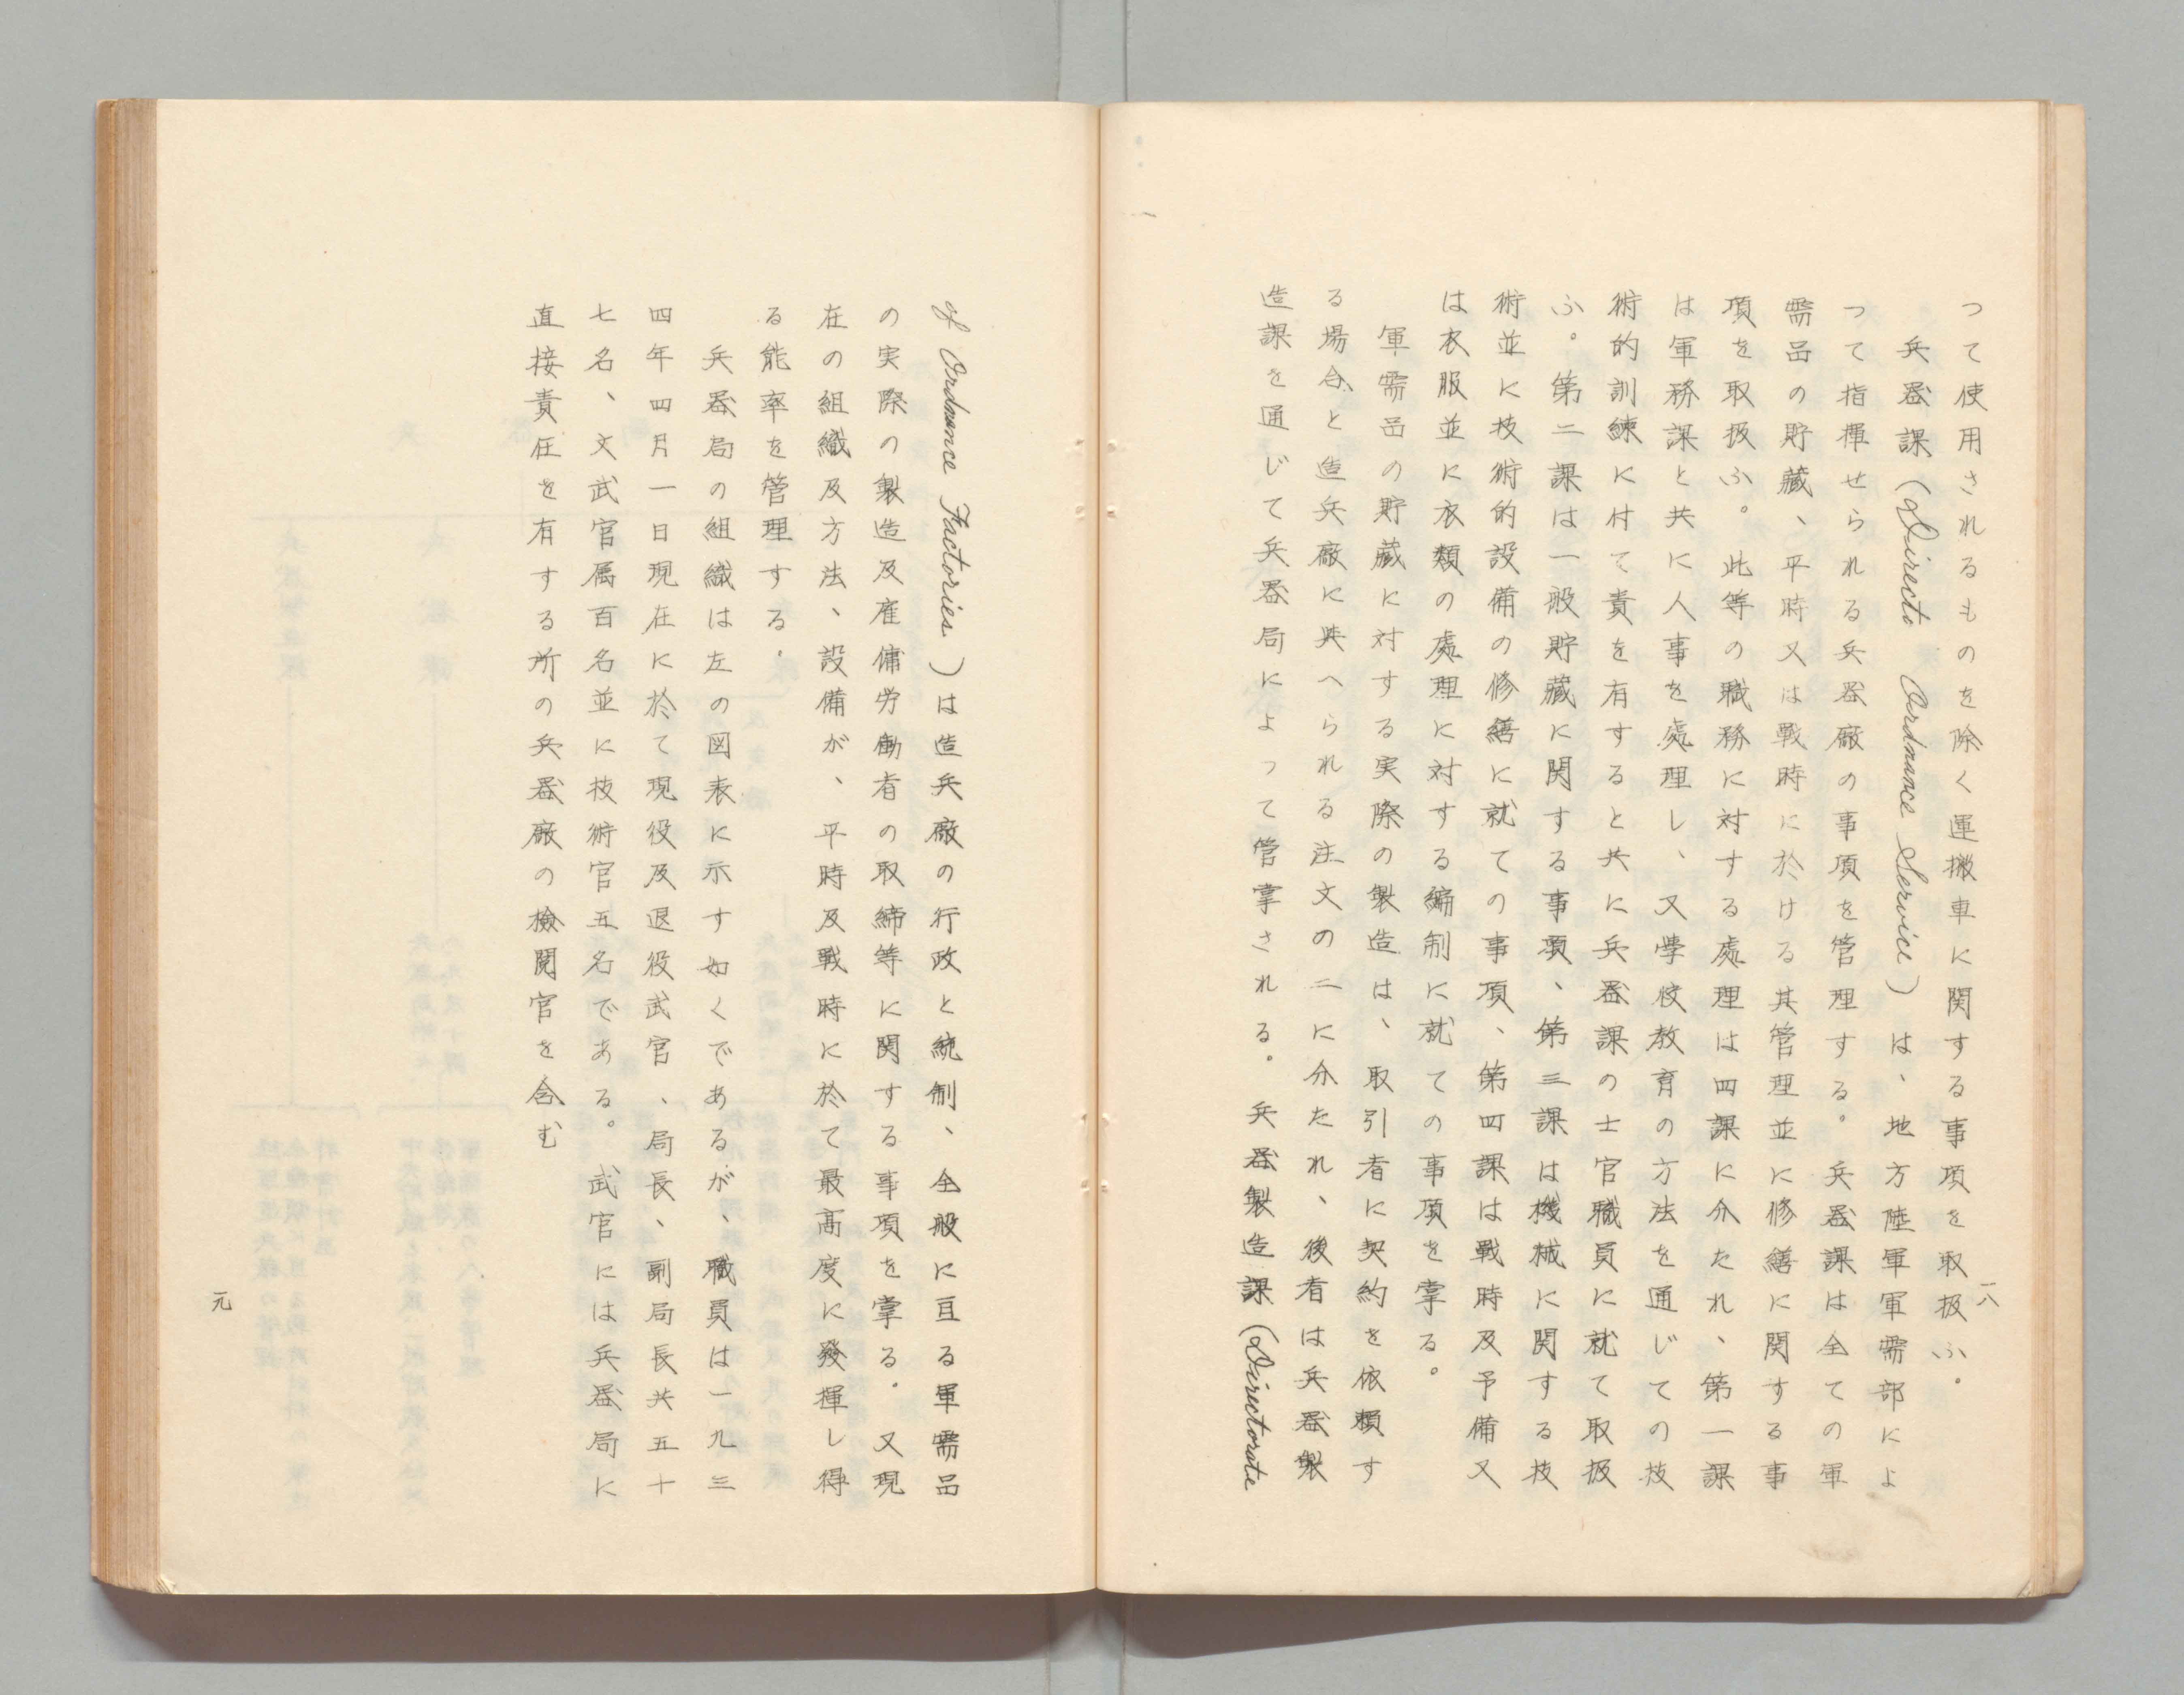 一八
つて使用されるものを除く運搬車に関する事項を取扱ふ。
兵器課(Directo Ordnance Service)は、地方陸軍軍需部によ
つて指揮せられる兵器廠の事項を管理する。兵器課は全ての軍
需品の貯藏、平時又は戰時に於ける其管理並に修繕に関する事
項を取扱ふ。此等の職務に対する處理は四課に分たれ、第一課
は軍務課と共に人事を處理し、又學校教育の方法を通じての技
術的訓練に付て責を有すると共に兵器課の士官職員に就て取扱
ふ。第二課は一般貯藏に関する事項、第三課は機械に関する技
術並に技術的設備の修繕に就ての事項、第四課は戰時及予備又
は衣服並に衣類の處理に対する編制に就ての事項を掌る。
軍需品の貯藏に対する実際の製造は、取引者に契約を依頼す
る場合と造兵廠に與へられる注文の二に分たれ、後者は兵器製
造課を通じて兵器局によつて管掌される。兵器製造課(Directorate
of Ordnance Factories)は造兵廠の行政と統制、全般に亘る軍需品
の実際の製造及雇傭労働者の取締等に関する事項を掌る。又現
在の組織及方法、設備が、平時及戰時に於て最高度に發揮し得
る能率を管理する.
兵器局の組織は左の図表に示す如くであるが、職員は一九三
四年四月一日現在に於て現役及退役武官、局長、副局長共五十
七名、文武官属百名並に技術官五名である。武官には兵器局に
直接責任を有する所の兵器廠の檢閲官を含む
一九